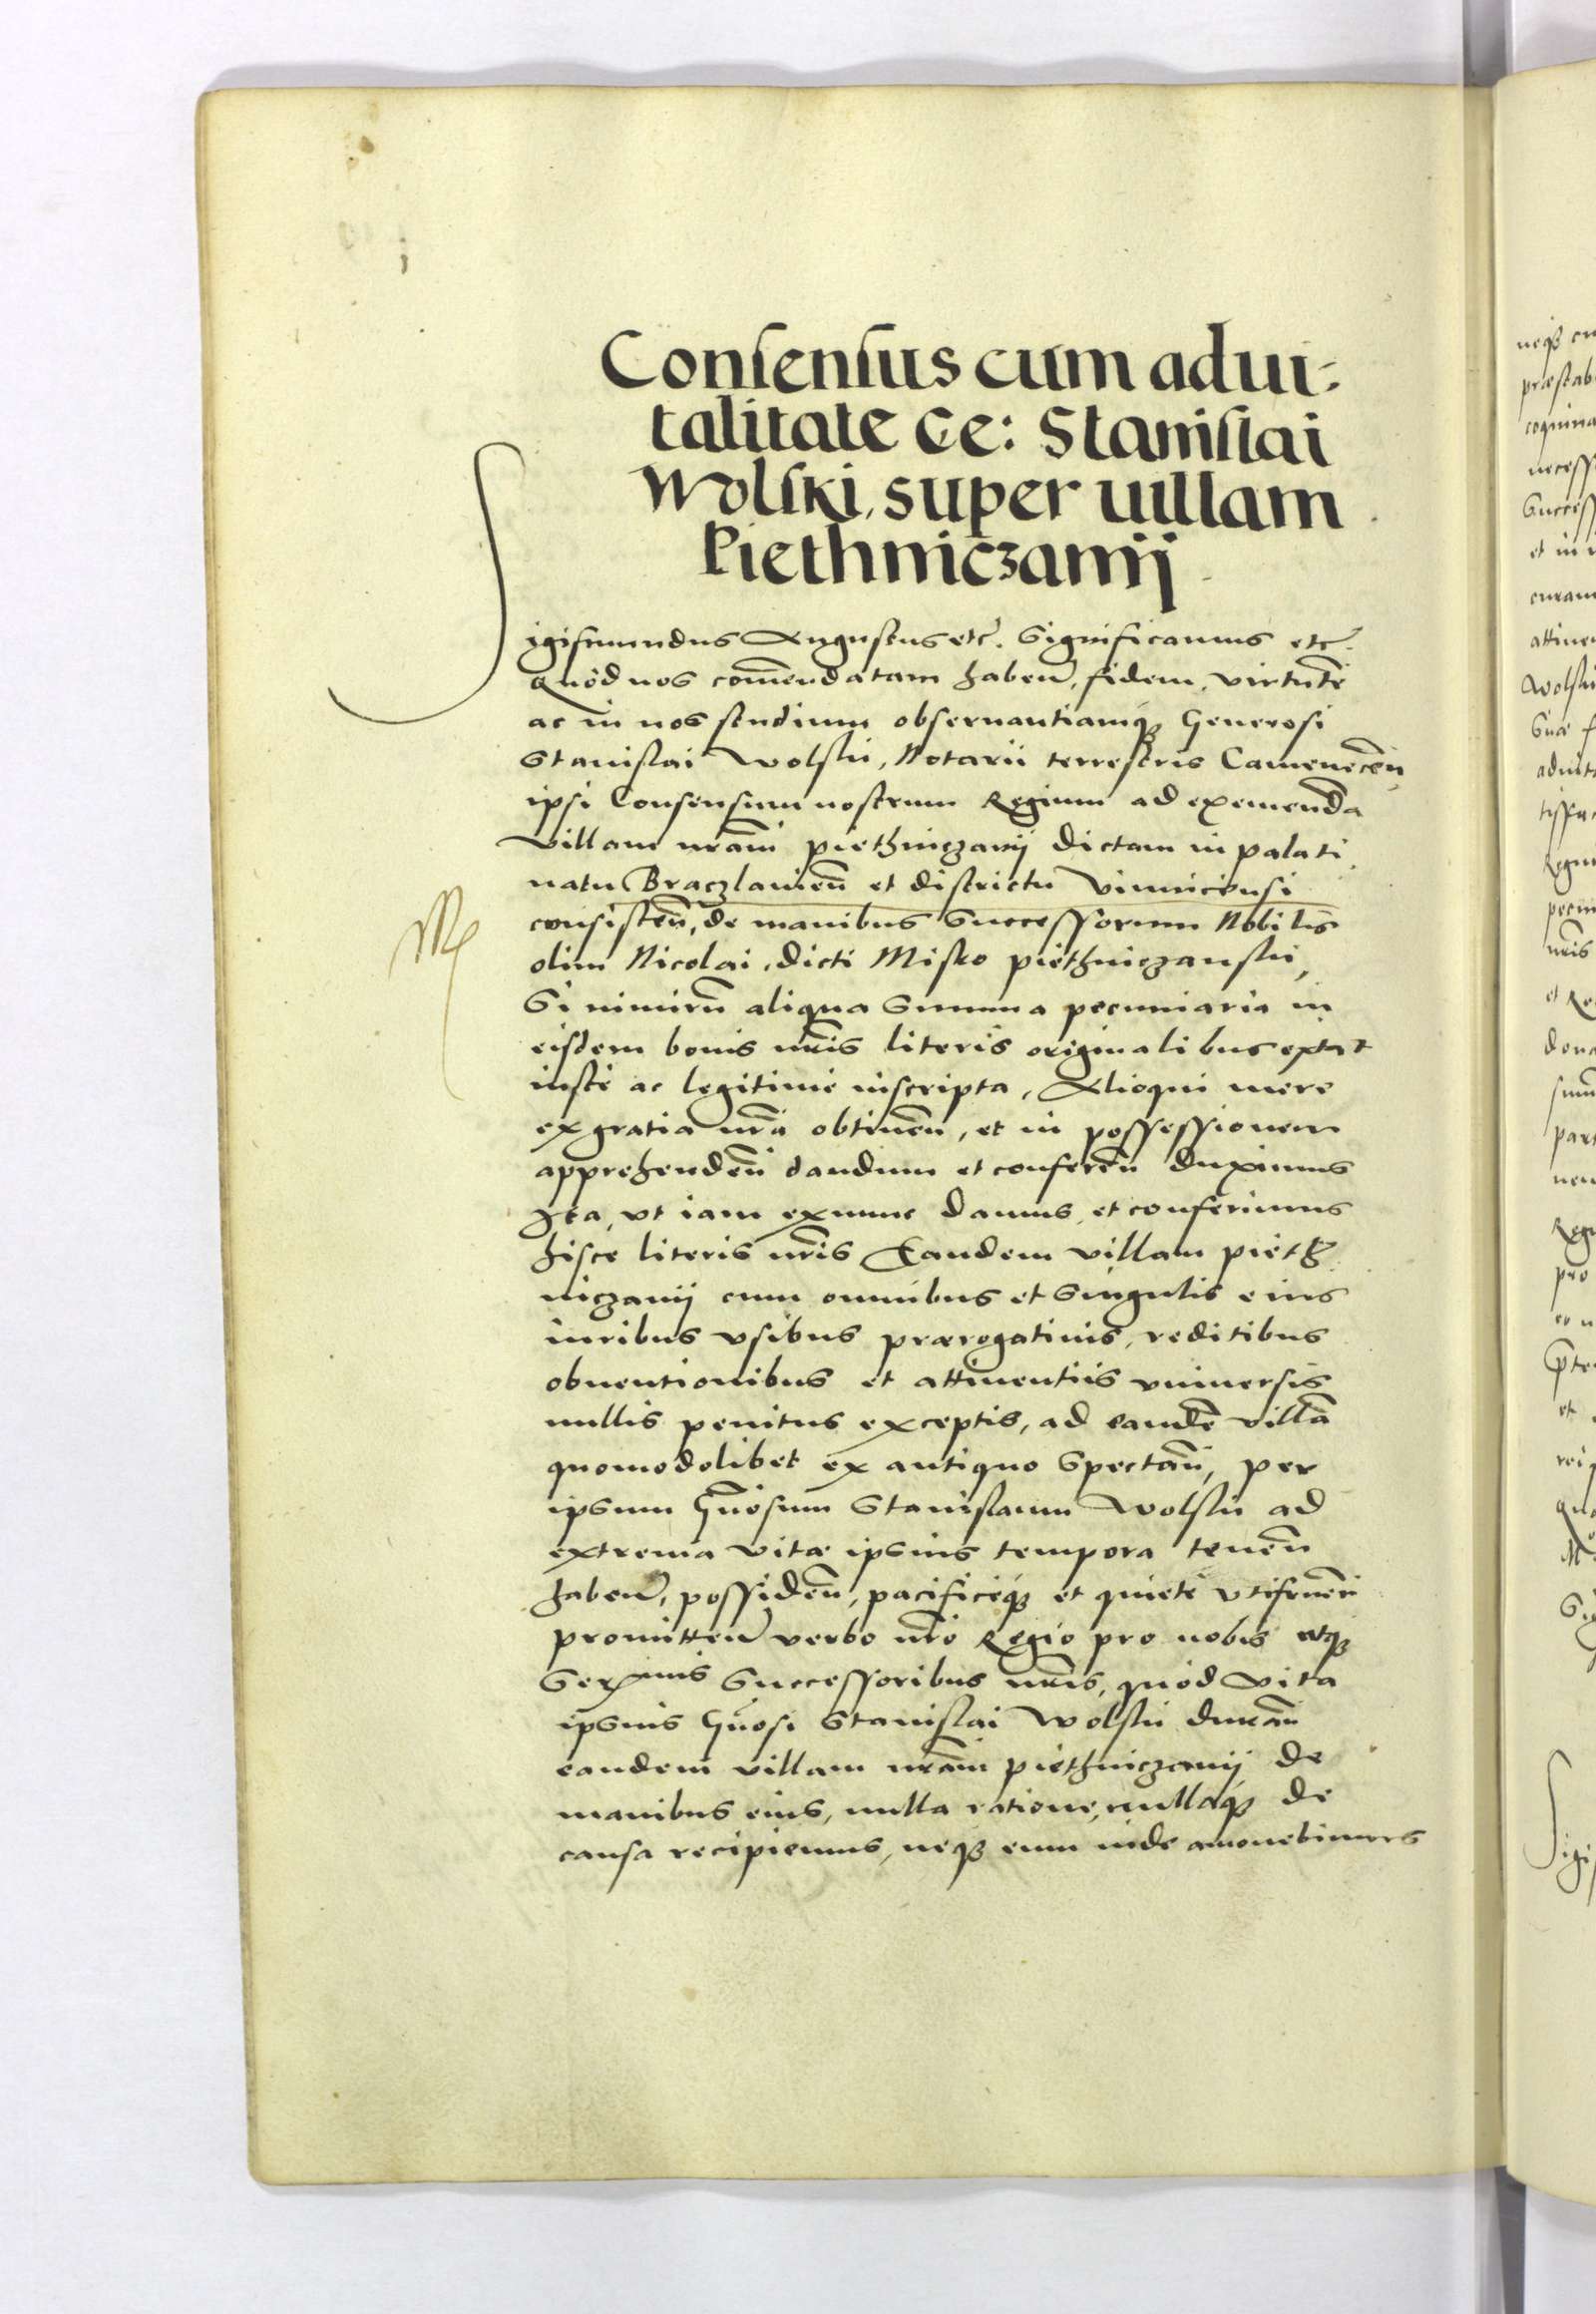 Consensus cum adui:
talitate Ge: Stanislai
Wolski, super uillam
Piethniczanij
Sigismundus Augustus etc̃. Significamus etc̃.
Quòd nos com̃endatam haben̄, fidem, virtutẽ
ac in nos studium obseruantiamqꝫ Generosi
Stanislai Wolski, Notarii terrestris Camenecen̄,
ipsi Consensum nostrum Regium ad eximendã
Villam nr̃am piethniczanij dictam in palati
natu Braczlauien̄ et districtu Vinnicensi
consisten̄, de manibus Successorum Nobilis
olim Nicolai, dicti Misko piethniczanski,
Si nimirũ aliqua Summa pecuniaria in
eisdem bonis nr̃is literis originalibus extat
iustè ac legitimè inscripta, Alioqui mere
ex gratia nr̃a obtinen̄, et in possessionem
apprehenden̄ dandum et conferen̄ duximus
Ita, vt iam exnunc damus, et conferimus
hisce literis nr̃is Eandem villam pieth
niczanij cum omnibus et singulis eius
iuribus vsibus prærogatiuis, reditibus
obuentionibus et attinentiis vniuersis
nullis penitus exceptis, ad eandẽ villã
quomodolibet ex antiquo Spectan̄, per
ipsum Gñosum Stanislaum Wolski ad
extrema vitæ ipsius tempora tenen̄
haben̄, possiden̄, pacificèqꝫ et quietè vtifruen̄
promitten̄ verbo nr̃o Regio pro nobis atqꝫ
Ser^mis Successoribus nr̃is, quòd Vita
ipsius Gñosi Stanislai Wolski duran̄
eandem villam nr̃am piethniczanij de
manibus eius, nulla ratione, nullaqꝫ de
causa recipiemus, neqꝫ eum inde amouebimus